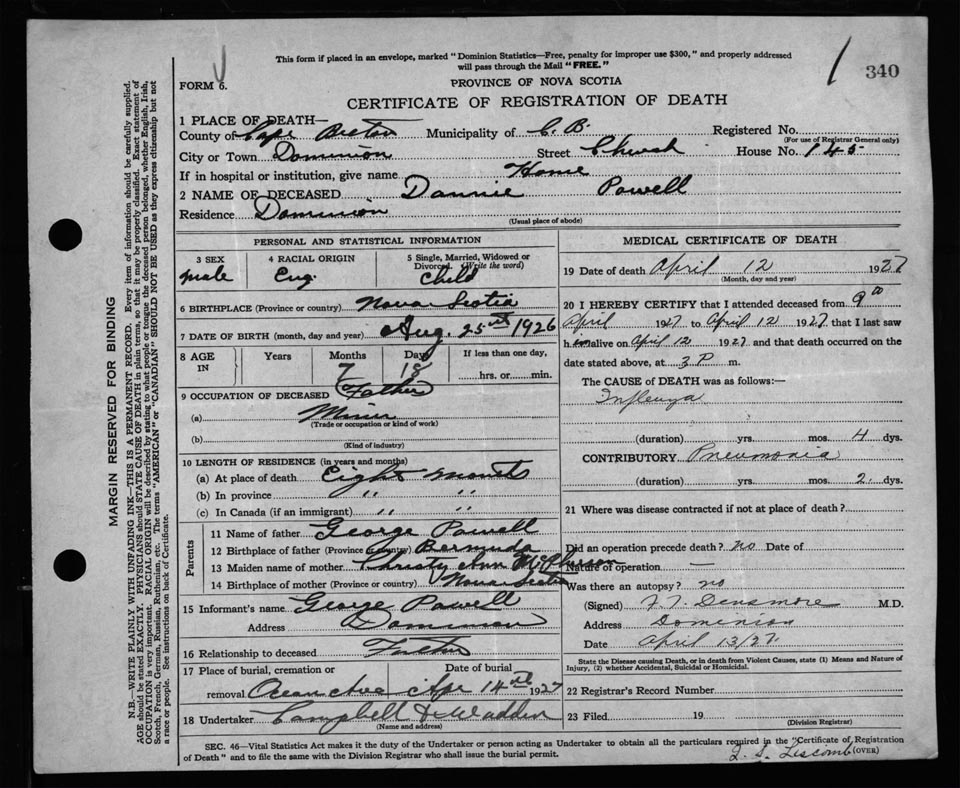 This form if placed in an envelope, marked "Dominion Statistics—Free, penalty for improper use $300," and properly addressed
will pass through the Mail "FREE."
1 340
FORM 6.
PROVINCE OF NOVA SCOTIA
CERTIFICATE OF REGISTRATION OF DEATH
1 PLACE OF DEATH—
County of Cape Breton Municipality of C. B. Registered No.
(For use of Registrar General only)
City or Town Dominion Street Church House No. 145
If in hospital or institution, give name Home
2 NAME OF DECEASED Dannie Powell
Residence Dominion
(Usual place of abode)
PERSONAL AND STATISTICAL INFORMATION
3 SEX 4 RACIAL ORIGIN 5 Single, Married, Widowed or Divorced (Write the word)
male Eng. Child
6 BIRTHPLACE (Province or country) Nova Scotia
7 DATE OF BIRTH (month, day and year) Aug. 25 1926
8 AGE IN Years Months Days If less than one day,
7 18 hrs. or min.
9 OCCUPATION OF DECEASED Father
(a) Miner
(Trade or occupation or kind of work)
(b)
(Kind of industry)
10 LENGTH OF RESIDENCE (in years and months)
(a) At place of death Eight months
(b) In province " "
(c) In Canada (if an immigrant) " "
Parents
11 Name of father George Powell
12 Birthplace of father (Province or country) Bermuda
13 Maiden name of mother Christy Ann McPherson
14 Birthplace of mother (Province or country) Nova Scotia
15 Informant's name George Powell
Address Dominion
16 Relationship to deceased Father
17 Place of burial, cremation or Date of burial
removal Ocean Ave Apr 14 1927
18 Undertaker Campbell & Wadden
(Name and address)
MEDICAL CERTIFICATE OF DEATH
19 Date of death April 12 1927
(Month, day and year)
20 I HEREBY CERTIFY that I attended deceased from 9
April 1927 to April 12 1927 that I last saw
him alive on April 12 1927 and that death occurred on the
date stated above, at 3 P. m.
The CAUSE of DEATH was as follows:—
Influenza
(duration) yrs. mos. 4 dys.
CONTRIBUTORY Pneumonia
(duration) yrs. mos. 2 dys.
21 Where was disease contracted if not at place of death?
Did an operation precede death? no Date of
Nature of operation —
Was there an autopsy? no
(Signed) F. T. Densmore M.D.
Address Dominion
Date April 13/27
State the Disease causing Death, or in death from Violent Causes, state (1) Means and Nature of
Injury, (2) whether Accidental, Suicidal or Homicidal.
22 Registrar's Record Number
23 Filed 19
(Division Registrar)
SEC. 46—Vital Statistics Act makes it the duty of the Undertaker or person acting as Undertaker to obtain all the particulars required in the "Certificate of Registration
of Death" and to file the same with the Division Registrar who shall issue the burial permit.
Liscomb (OVER)
MARGIN RESERVED FOR BINDING
N.B.—WRITE PLAINLY WITH UNFADING INK—THIS IS A PERMANENT RECORD. Every item of information should be carefully supplied.
AGE should be stated EXACTLY. PHYSICIANS should STATE CAUSE OF DEATH in plain terms, so that it may be properly classified. Exact statement of
OCCUPATION is very important. RACIAL ORIGIN will be described by stating to what people or tongue the deceased person belonged, whether English, Irish,
Scotch, French, German, Russian, Ruthenian, etc. The terms "AMERICAN" or "CANADIAN" SHOULD NOT BE USED as they express citizenship but not
a race or people. See instructions on back of Certificate.